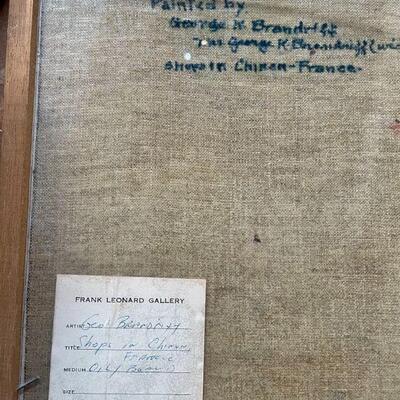 Painted by
George K Brandriff
Mrs George K Brandriff (wi
Shops in Chinon-France-
FRANK LEONARD GALLERY
ARTIST Geo Brandriff
TITLE Shops in Chinon,
France
MEDIUM Oil/Board
SIZE